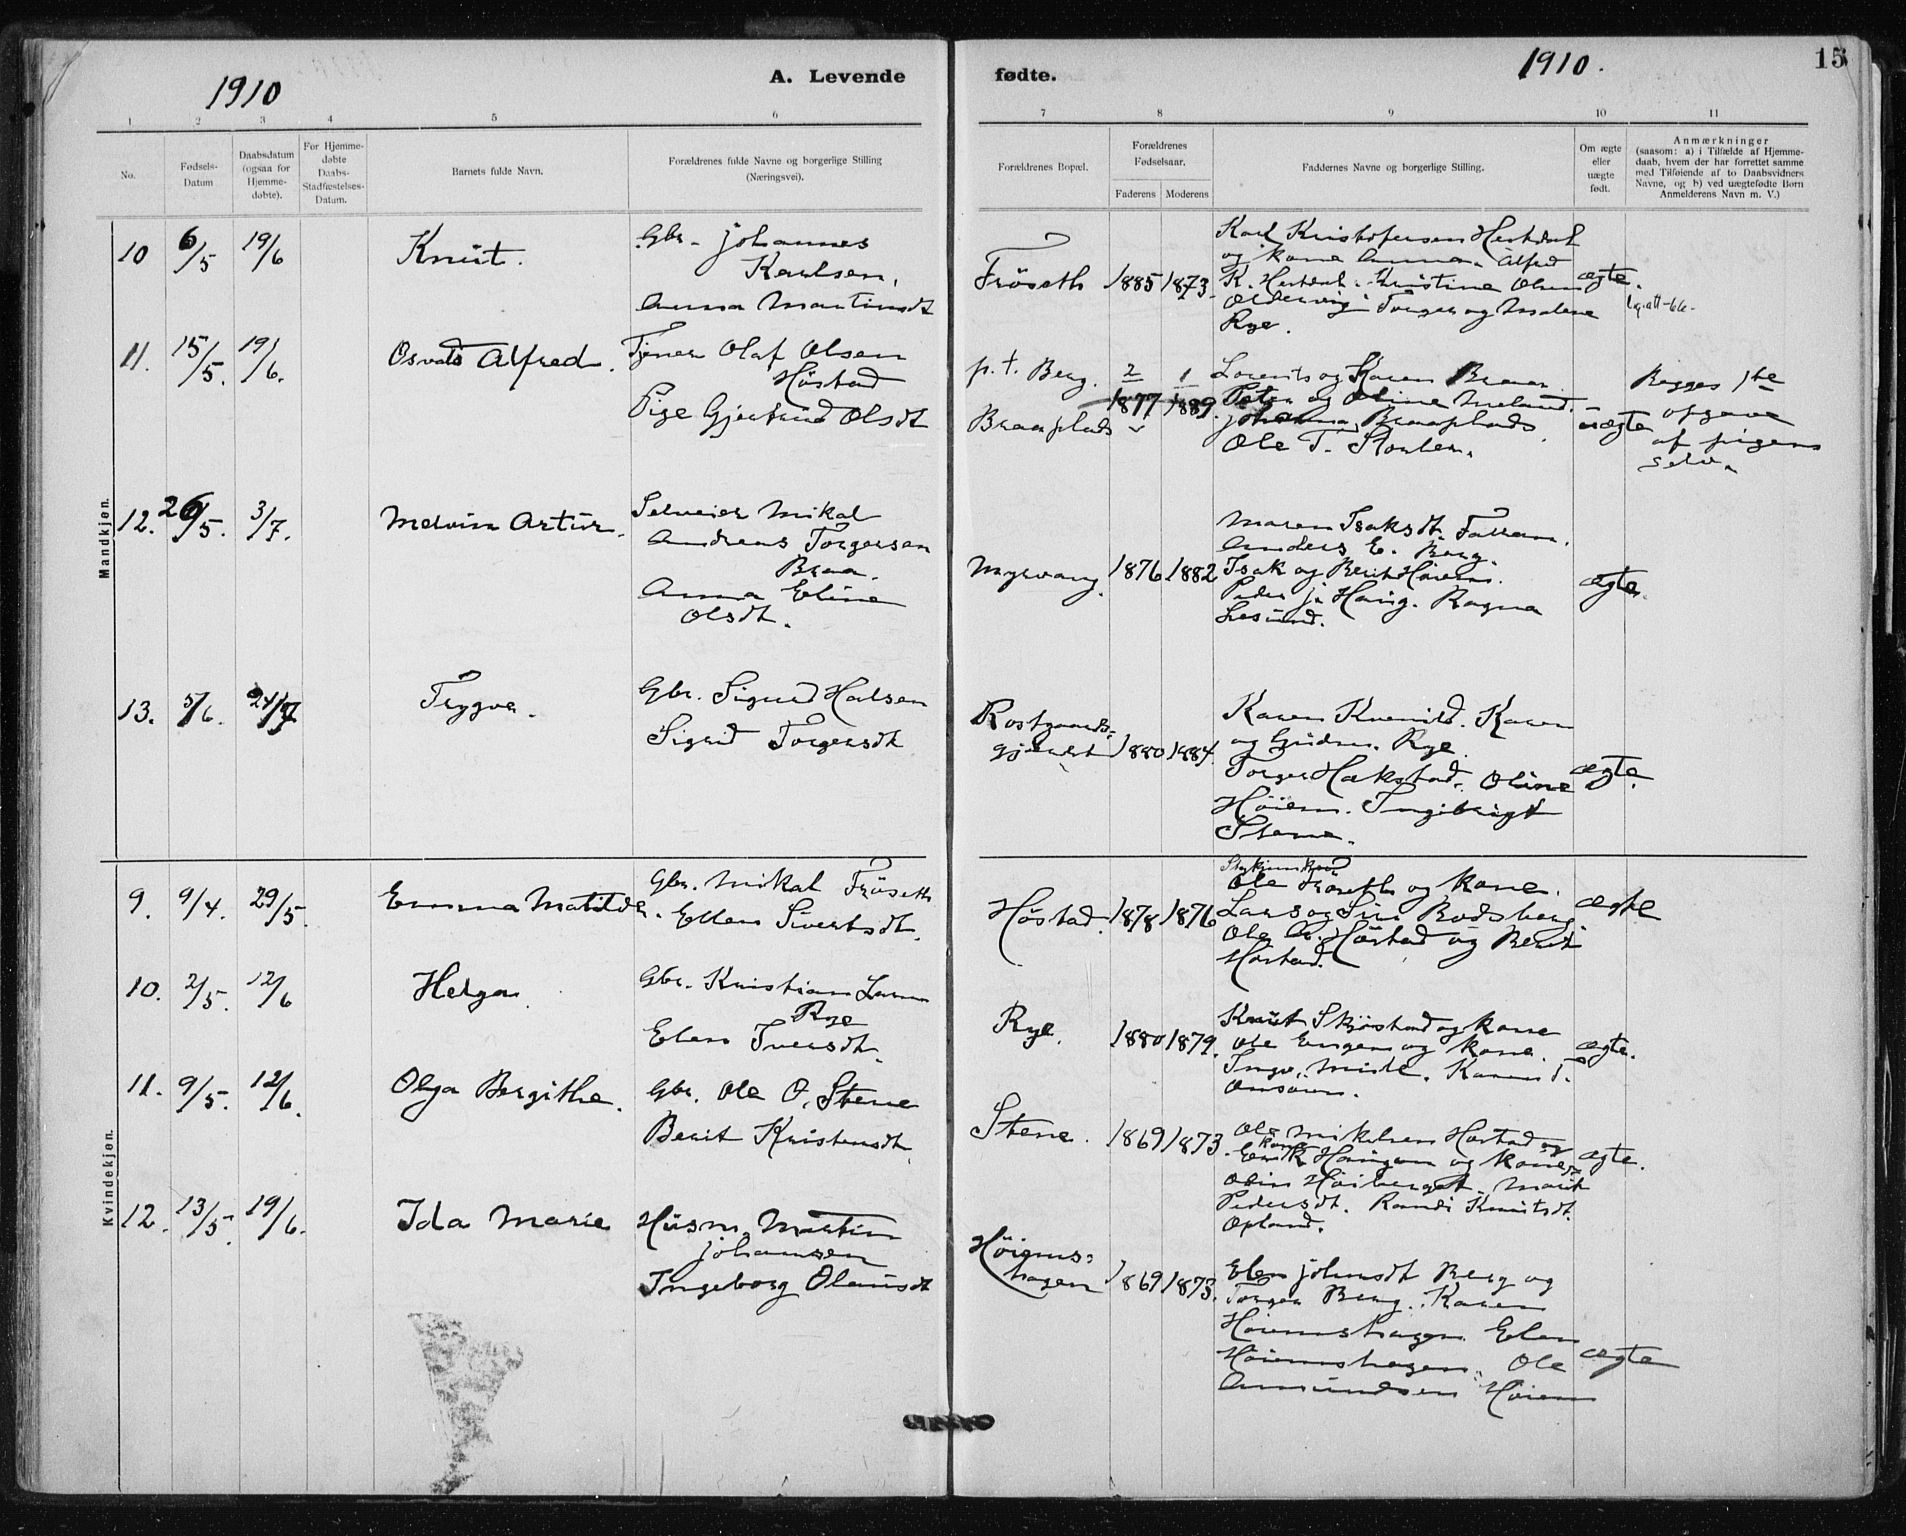 1910
A. Levende
fødte.
1910.
15
1 2 3 4 5 6 7 8 9 10 11
No.
Fødsels-
Datum
Daabsdatum
(ogsaa for
Hjemme-
døbte).
For Hjemme-
døbte
Daabs-
Stadfæstelses-
Datum.
Barnets fulde Navn.
Forældrenes fulde Navne og borgerlige Stilling
(Næringsvei).
Forældrenes Bopæl.
Forældrenes
Fødselsaar.
Faderens Moderens
Faddernes Navne og borgerlige Stilling.
Om ægte
eller
uægte
født.
Anmærkninger
(saasom: a) i Tilfælde af Hjemme-
daab, hvem der har forrettet samme
med Tilføiende af to Daabsvidners
Navne, og b) ved uægtefødte Børn
Anmelderens Navn m. V.)
Mandkjøn.
10 6/5 19/6 Knut.
Gbr. Johannes
Karlsen,
Anna Martinsdt
Frøseth 1885 1873
Karl Kristofersen
og kone Anna. Alfred
Kristine Olsen
Torger og Malene
Rye.
ægte.
11. 15/5. 19/6. Osvald Alfred.
Tjener Olaf Olsen
Høstad
Pige Gjertrud Olsdt
p.t. Berg.
Braaplads
2 1
1877 1889.
og Karen Braa
Peter og Oline
Johanna Braaplads
Ole T.
uægte
Begges 1te
opgave
af pigen
selv.
12. 26/5. 3/7. Melvin Artur.
Selveier Mikal
Andreas Torgersen
Braa.
Anna Eline
Olsdt.
Myrvang. 1876 1882
Maren Isaksdt.
Anders E. Berg.
Isak og Berit Høiem.
Peder J. Haug. Ragna
ægte.
13. 5/6. 24/7 Trygve.
Gbr. Sigurd Halsen
Sigrid Torgersdt
Rostgaards-
gjerdet 1880 1884.
Karen Kvenild. Karen
og Gudrun Rye.
Torger Hakstad. Oline
Høiem. Ingebrigt
Stene.
ægte.
Kvindekjøn.
9. 9/4. 29/5. Emma Matilde.
Gbr. Mikal Frøseth
Ellen Sivertsdt.
Høstad. 1878 1876
Ole Frøseth og kone.
Lars og Siri Bodsberg
Ole Høstad og Berit
Høstad.
ægte
10. 2/5. 12/6 Helga.
Gbr. Kristian Larsen
Rye
Elen Iversdt.
Rye. 1880 1879.
Knut Skjøstad og kone
Ole Engen og kone.
Karen T.
ægte.
11. 9/5. 12/6. Olga Bergithe.
Gbr. Ole O. Stene
Berit Kristensdt.
Stene. 1869 1873
Ole Mikelsen Høstad og
kone
Haugen og kone
Odin Høiberget. Marit
Pedersdt. Randi Knutsdt.
Opland.
ægte.
12. 13/5. 19/6. Ida Marie
Husm. Martin
Johansen
Ingeborg Olausdt
Høiems-
hagen 1869 1873.
Elen Johnsdt Berg og
Torger Berg. Karen
Høiemshagen. Elen
Høiemshagen. Ole
Amundsen Høiem
ægte